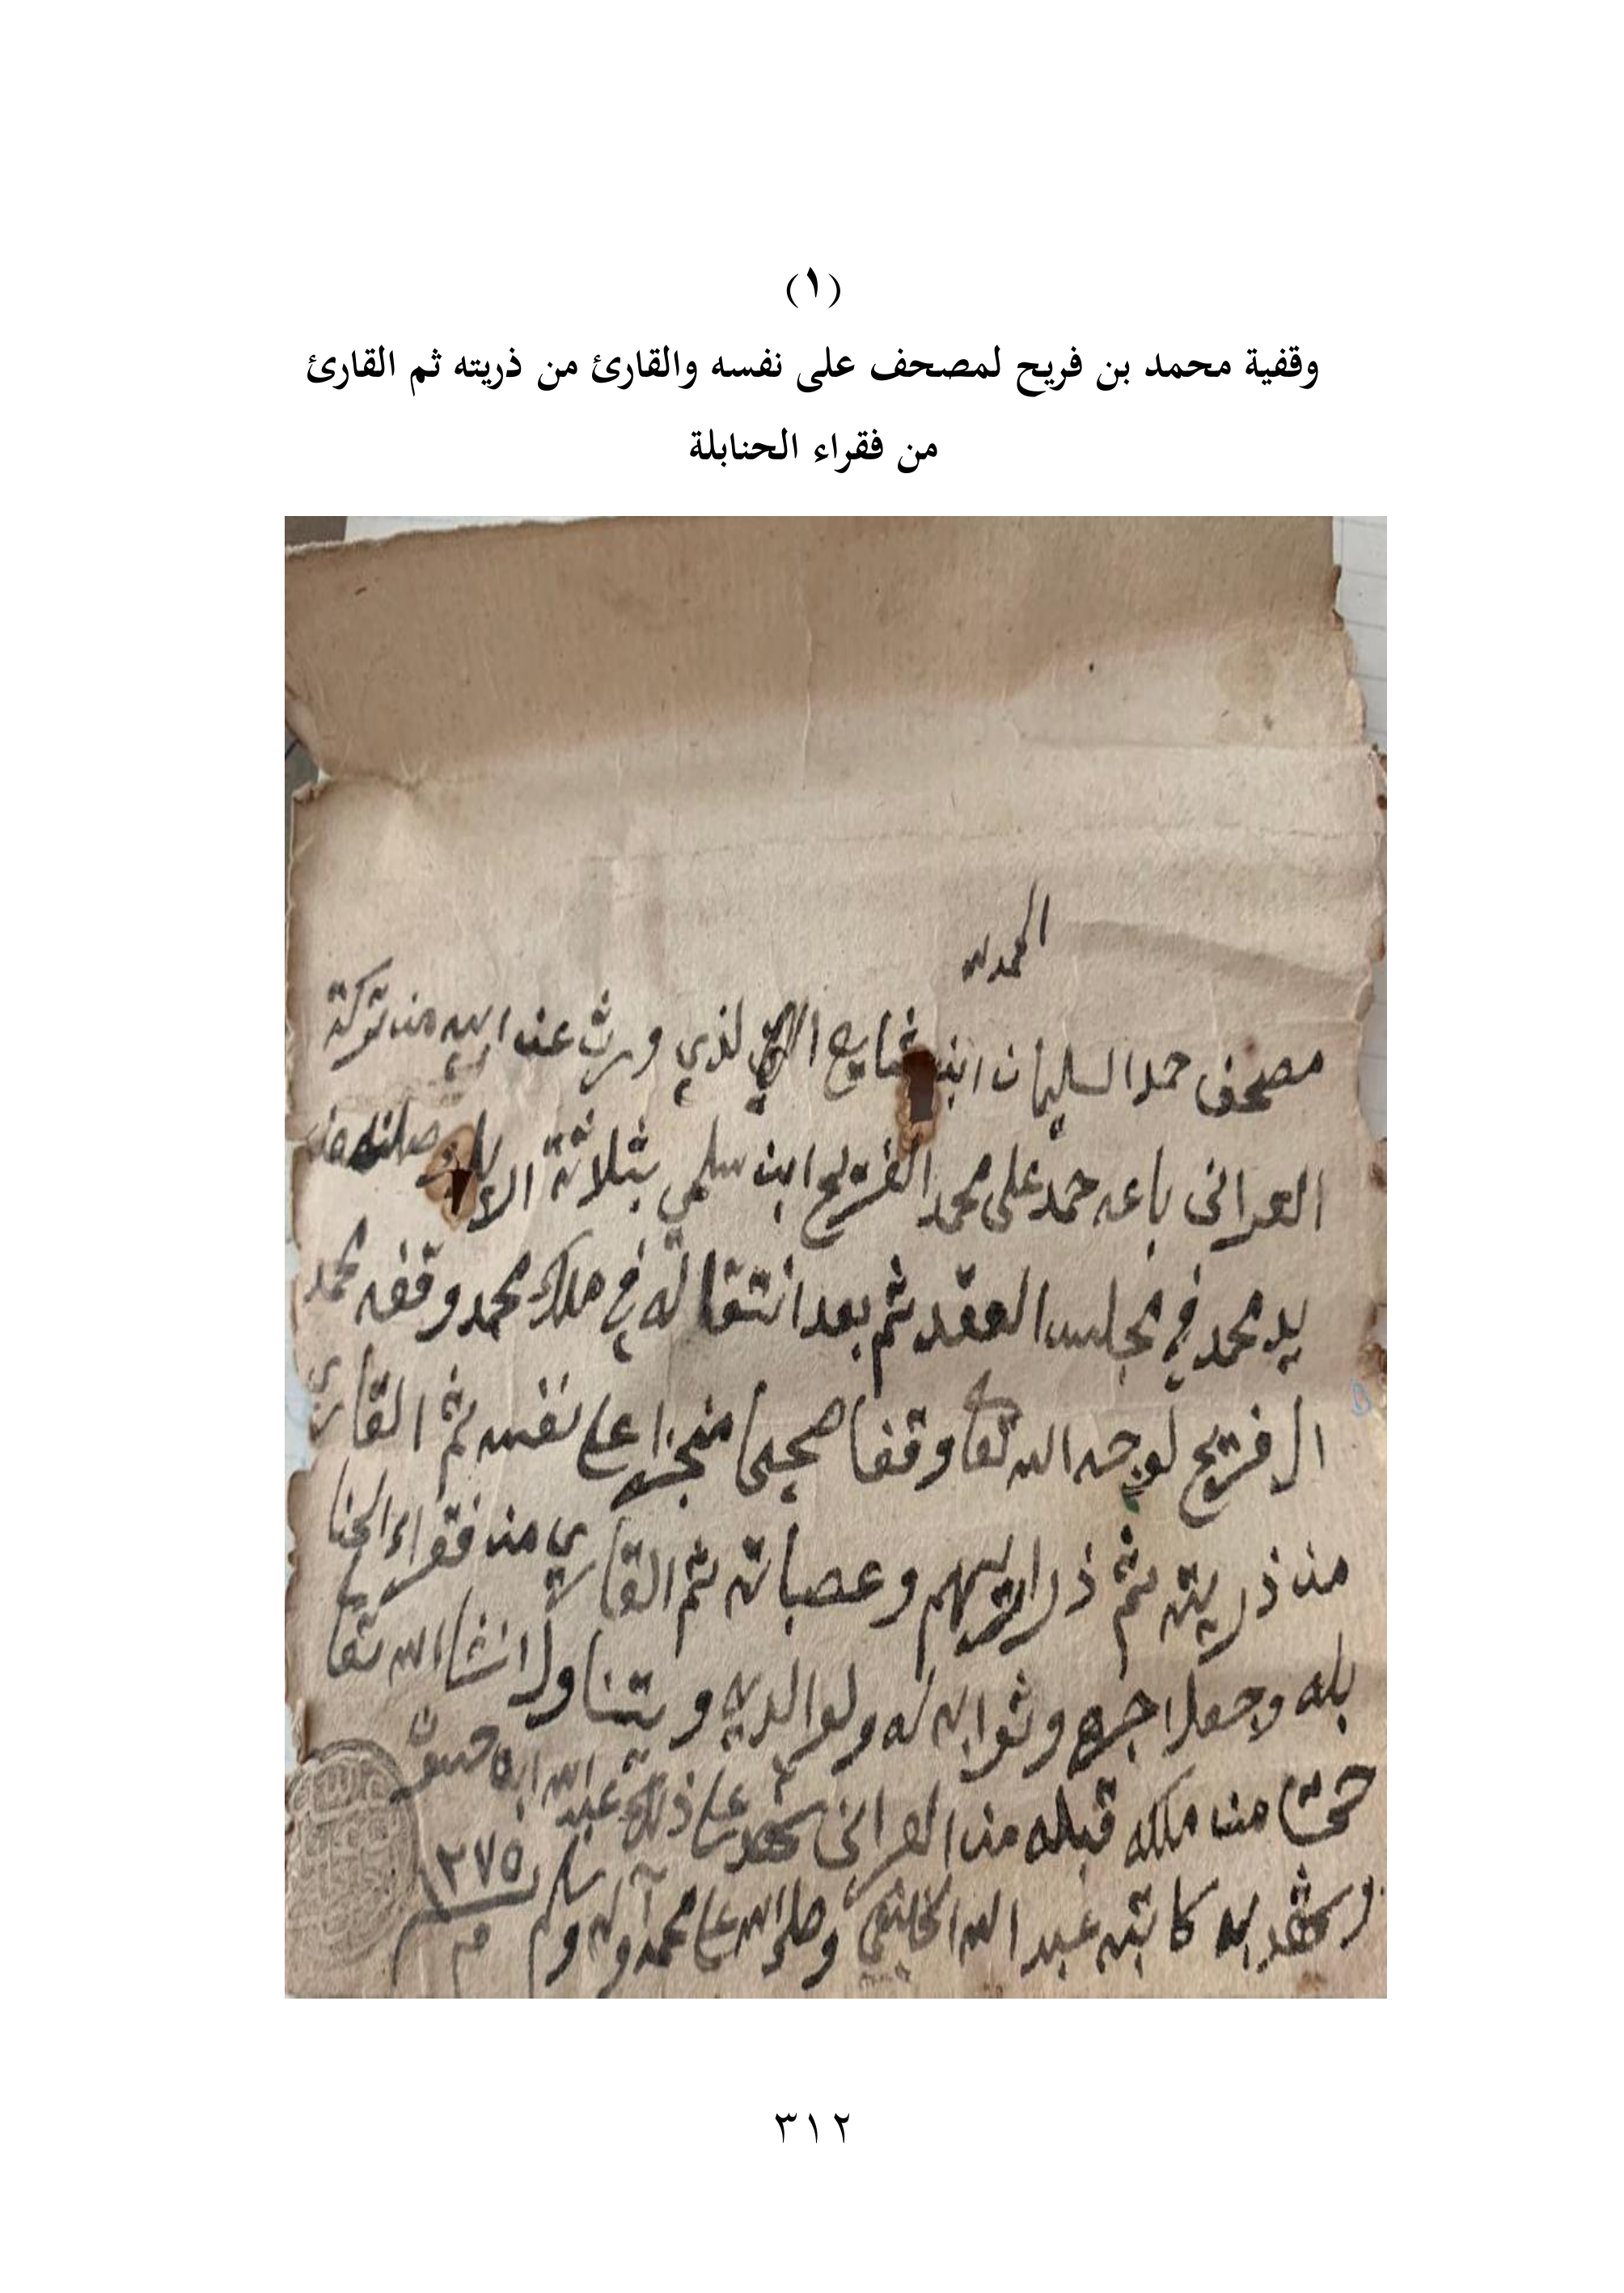 (١)
وقفية محمد بن فريح لمصحف على نفسه والقارئ من ذريته ثم القارئ
من فقراء الحنابلة
الحمد لله
مصحف حمد السليمان ابن لذي ورث عن ابيه من تركة
العراني باعه حمد على محمد الفريح ابن سلمي بثلاثة
يد محمد في مجلس العقد ثم بعد انتقاله في ملك محمد وقفه محمد
الفريح لوجه الله تعا وقفا صحيحا منجزا على نفسه ثم القاري
من ذريته ثم ذراريهم وعصباته ثم القاري من فقراء الحنا
بله وجعل اجره وثوابه له ولوالديه ويتناول انشاالله تعا
حتى من ملكه قبله من العراني شهد على ذلك عبد الله ابن
وشهد به كاتبه عبد الله الخليفي وصلى الله على محمد وآله وسلم
٢٧٥
٣١٢